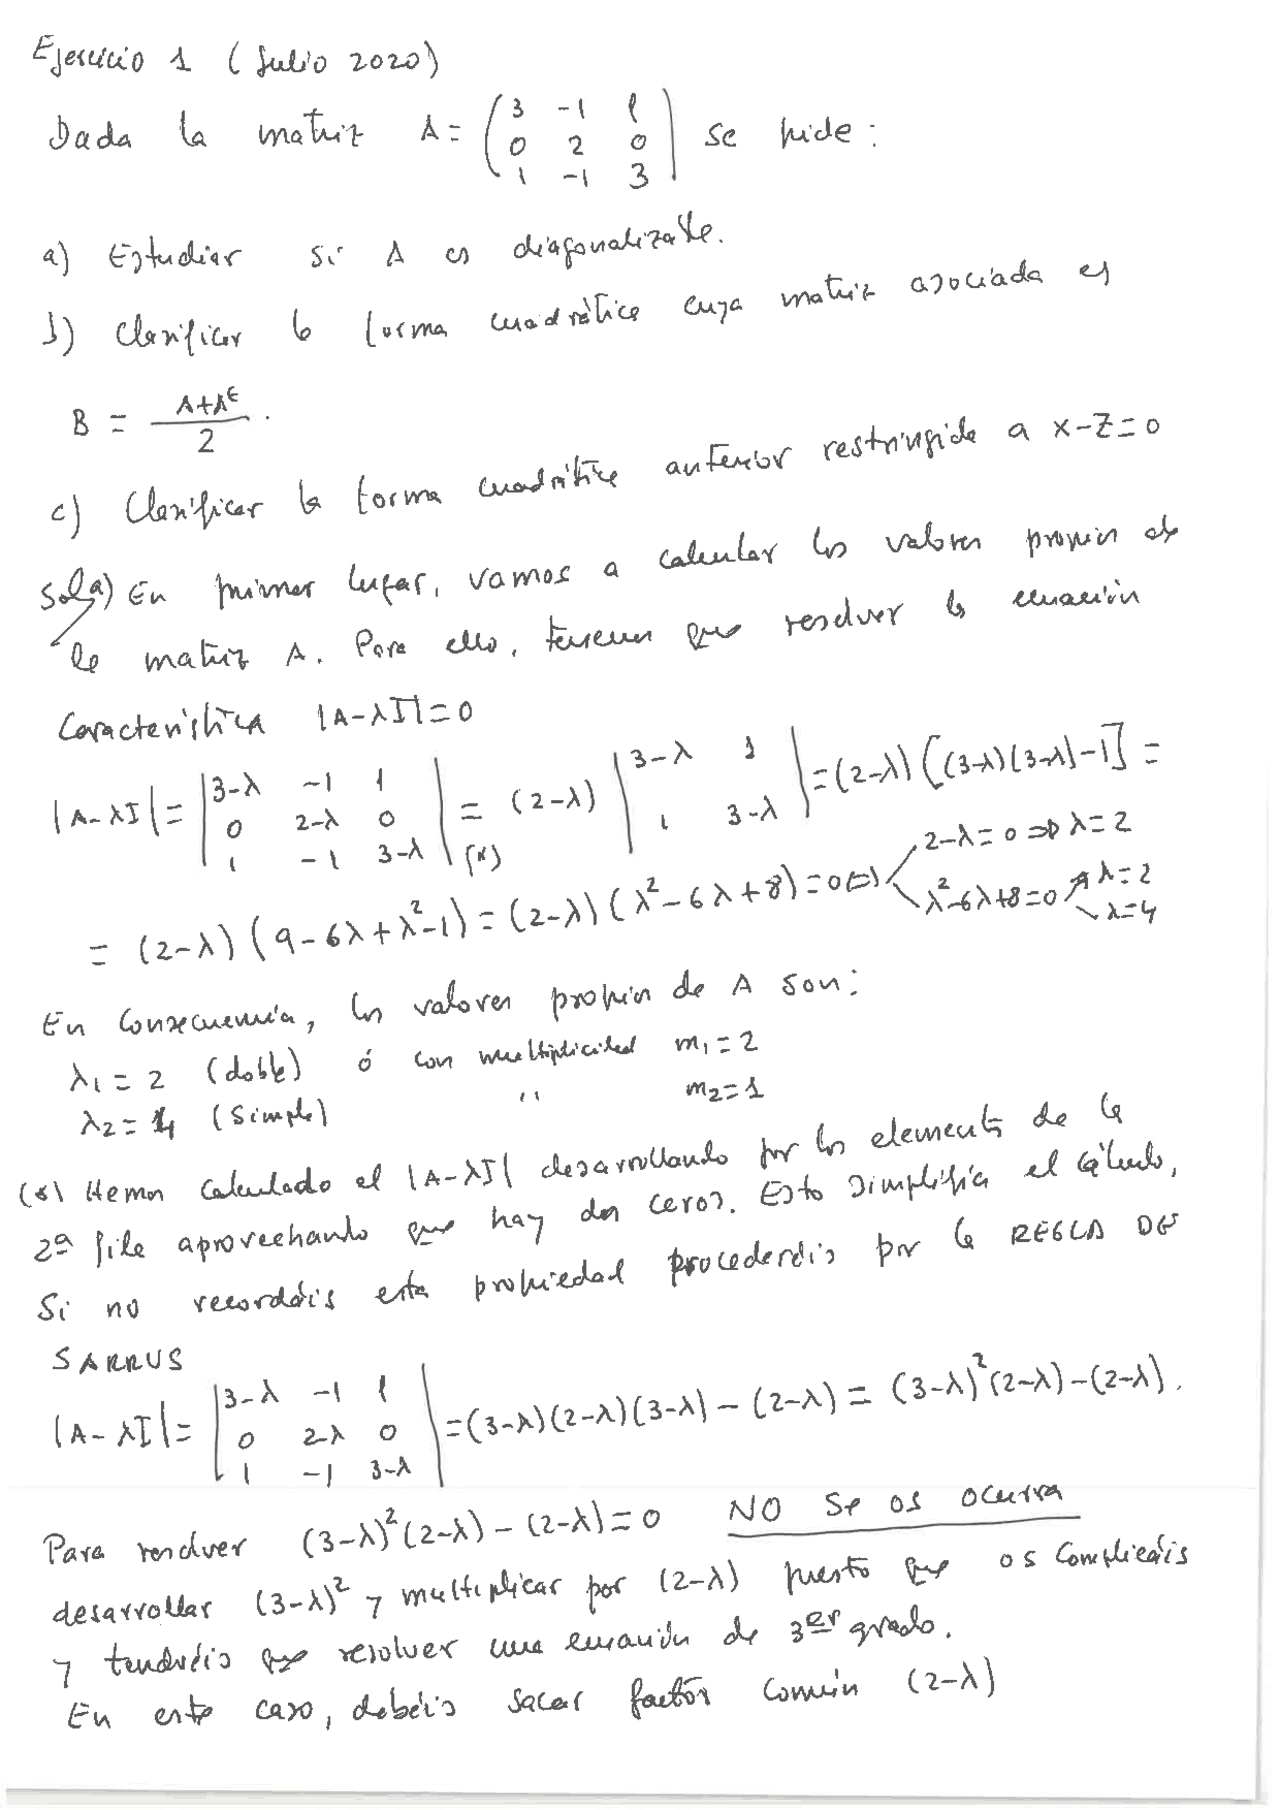 Ejercicio 1 (Julio 2020)
Dada la matriz A = (3 -1 1 / 0 2 0 / 1 -1 3) se pide:
a) Estudiar si A es diagonalizable.
b) Clasificar la forma cuadrática cuya matriz asociada es
B = (A+A^t)/2.
c) Clasificar la forma cuadrática anterior restringida a x-z=0
Sol a) En primer lugar, vamos a calcular los valores propios de
la matriz A. Para ello, tenemos que resolver la ecuación
Característica |A-λI|=0
|A-λI| = |3-λ -1 1 / 0 2-λ 0 / 1 -1 3-λ| =(*) (2-λ) |3-λ 1 / 1 3-λ| = (2-λ)[(3-λ)(3-λ)-1] =
= (2-λ)(9-6λ+λ²-1) = (2-λ)(λ²-6λ+8) = 0 ⇔ 2-λ=0 ⇒ λ=2
λ²-6λ+8=0 λ=2 λ=4
En consecuencia, los valores propios de A son:
λ₁ = 2 (doble) ó con multiplicidad m₁ = 2
λ₂ = 4 (simple) " m₂ = 1
(*) Hemos calculado el |A-λI| desarrollando por los elementos de la
2ª fila aprovechando que hay dos ceros. Esto simplifica el cálculo,
Si no recordáis esta propiedad procederéis por la REGLA DE
SARRUS
|A-λI| = |3-λ -1 1 / 0 2-λ 0 / 1 -1 3-λ| = (3-λ)(2-λ)(3-λ) - (2-λ) = (3-λ)²(2-λ)-(2-λ).
Para resolver (3-λ)²(2-λ)-(2-λ)=0 NO se os ocurra
desarrollar (3-λ)² y multiplicar por (2-λ) puesto que os complicáis
y tendréis que resolver una ecuación de 3er grado.
En este caso, debéis sacar factor común (2-λ)